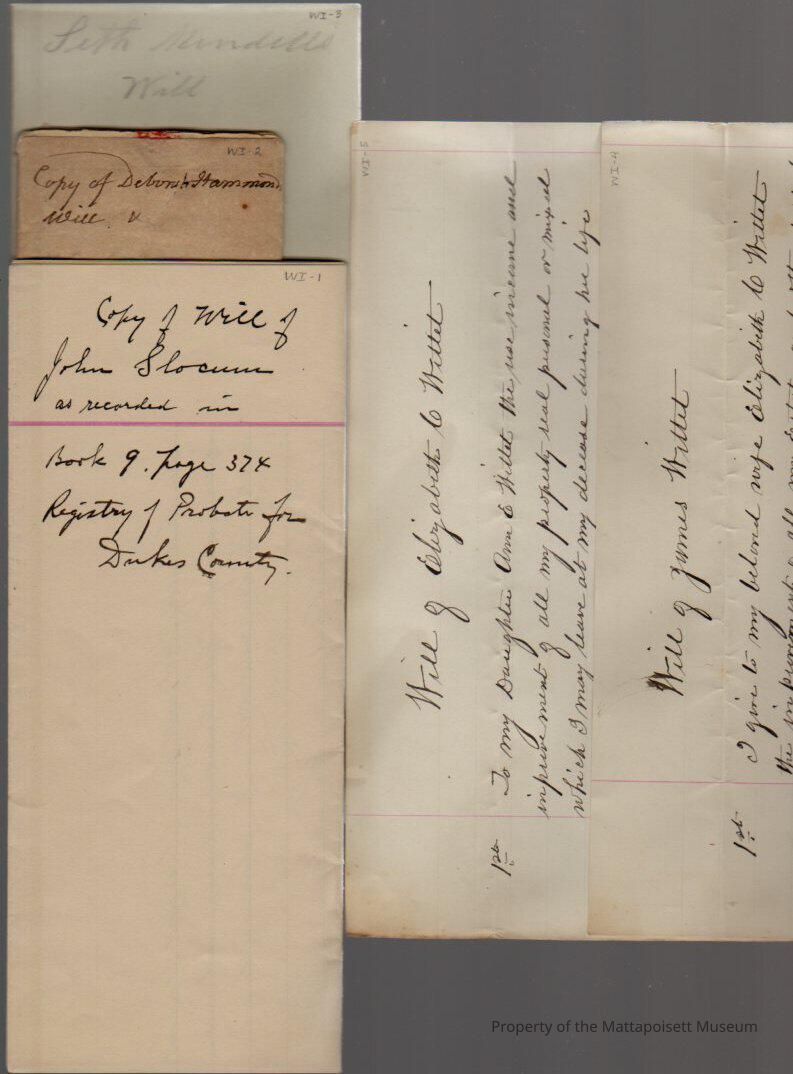 WI-3
Seth Mendells
Will
WI-2
Copy of Deborah Hammond
Will &
WI-1
Copy of Will of
John Slocum
as recorded in
Book 9. page 374
Registry of Probate for
Dukes County.
WI-5
Will of Elizabeth C Willet
1st To my Daughter Ann E Willet the use income and
improvement of all my property real personal or mixed
which I may leave at my decease during her life
WI-4
Will of James Willet
1st I give to my beloved wife Elizabeth C Willet
the improvement of all my
Property of the Mattapoisett Museum